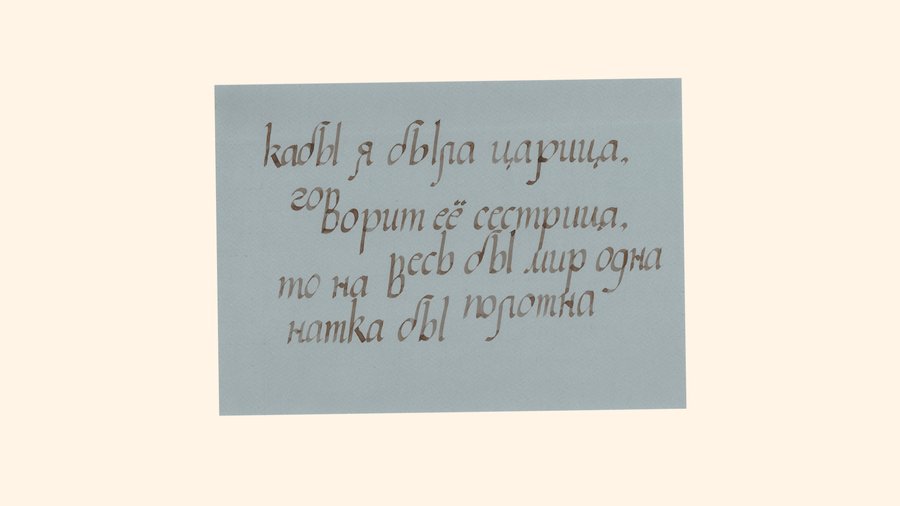 кабы я была царица,
говорит её сестрица,
то на весь бы мир одна
натка бы полотна